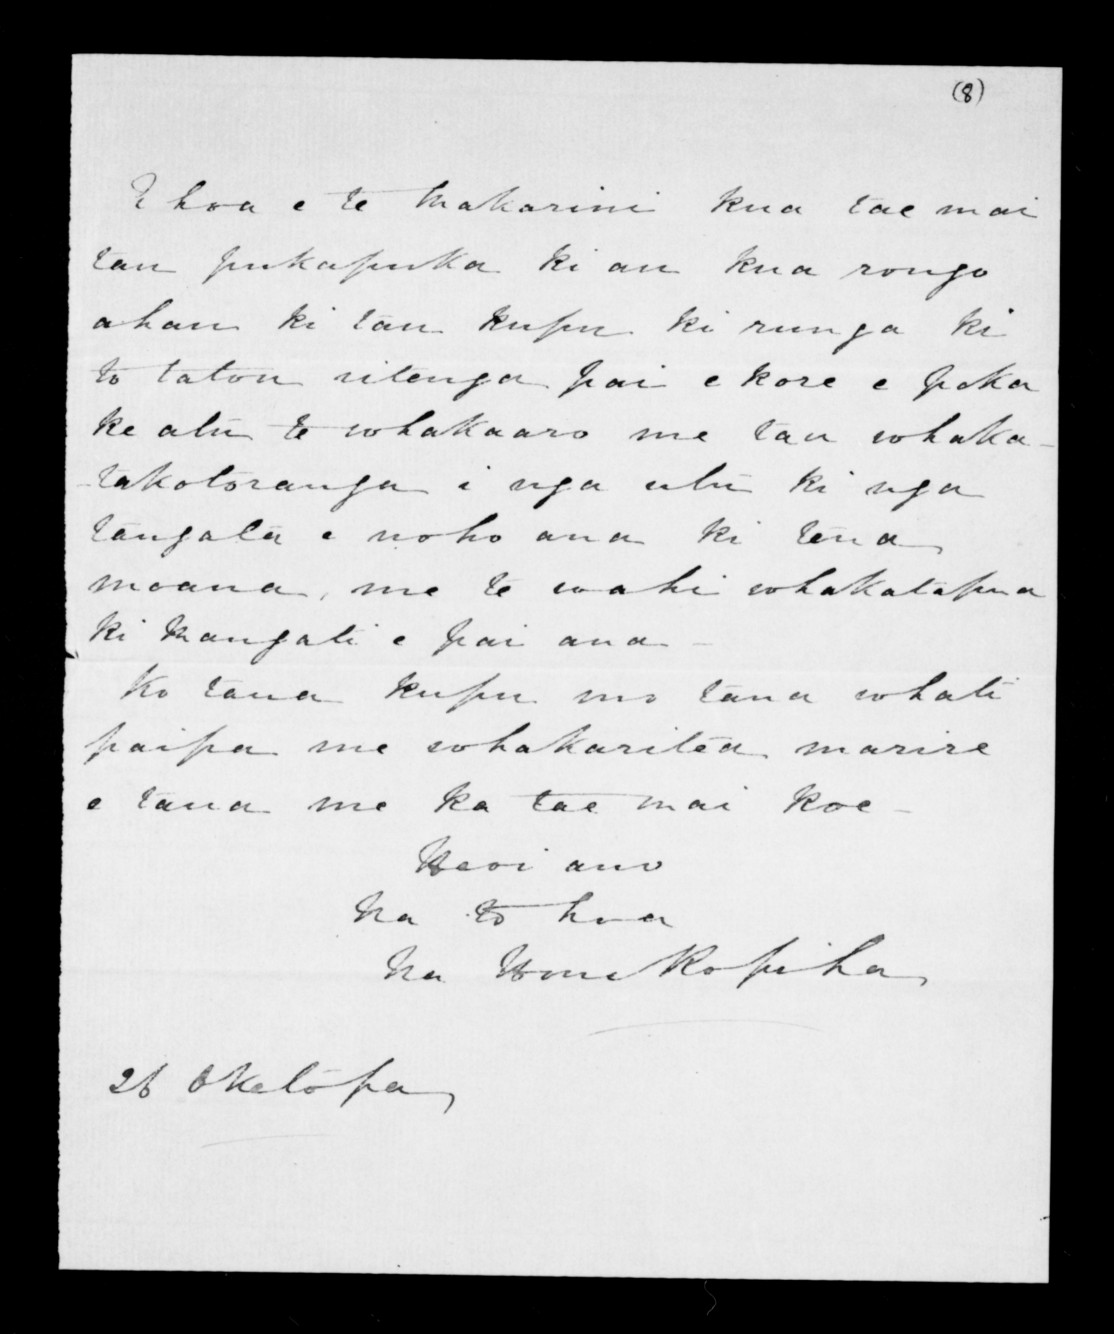 (8)
E hoa e te Makarini kua tae mai
tau pukapuka ki au kua rongo
ahau ki tau kupu ki runga ki
to tatou ritenga pai e kore e poka
ke atu te whakaaro me tau whaka-
-takotoranga i nga utu ki nga
tangata e noho ana ki tena
moana, me te wahi whakatapua
ki Mangati e pai ana -
Ko taua kupu mo taua whati
paipa me whakaritea marire
e taua me ka tae mai koe -
Heoi ano
Na to hoa
Na Hone Ropiha
26 Oketopa